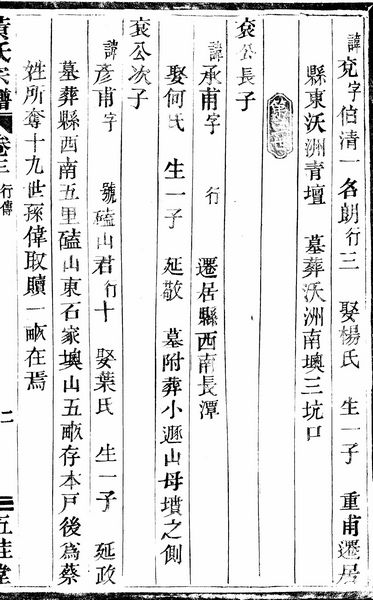 諱兗字伯清一名朗行三　娶楊氏　生一子　重甫遷居
縣東沃洲靑壇　墓葬沃洲南墺三坑口
袞公長子
諱承甫字　行　遷居縣西南長潭
娶何氏　生一子　延敬　墓附葬小遯山母墳之側
袞公次子
諱彥甫字　號磕山君行十　娶葉氏　生一子　延政
墓葬縣西南五里磕山東石家墺山五畝存本戸後爲蔡
姓所奪十九世孫偉取贖一畝在焉
黃氏宗譜　卷三　行傳　二　五桂堂